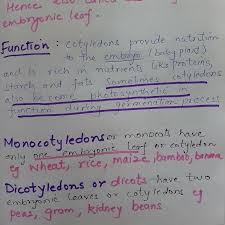 Hence also called
embryonic leaf.
Function : Cotyledons provide nutrition
to the embryo (baby plant)
and is rich in nutrients like proteins,
starch and fats. Sometimes cotyledons
also become photosynthetic in
function during germination process
Monocotyledons or monocots have
only one embryonic leaf or cotyledon
eg wheat, rice, maize, bamboo, banana
Dicotyledons or dicots have two
embryonic leaves or cotyledons eg
peas, gram, kidney beans